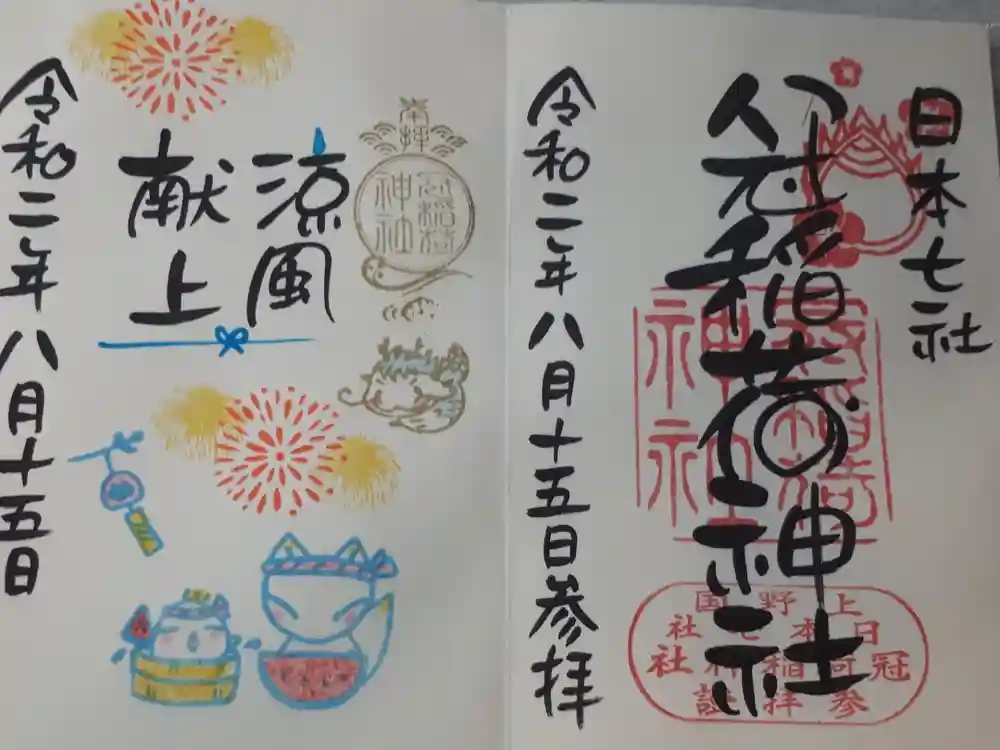 日本七社
冠稲荷神社
上野国
日本七社
冠稲荷神社
参拝證
令和二年八月十五日参拝
奉拝
冠稲荷
神社
涼風
献上
令和二年八月十五日